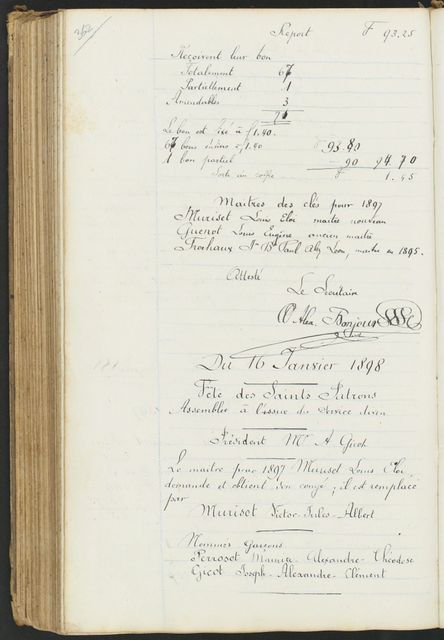 362
Report F 93.25
Reçoivent leur bon
Totalement 67
Partiellement 1
Amendables 3
71
Le bon est fixé à f 1.40.
67 bons entiers à f 1.40 f 93.80
1 bon partiel - 90 94.70
Sorte du coffre F 1.45
Maîtres des clés pour 1897
Muriset Louis Eloi maître nouveau
Guenot Louis Eugène ancien maître
Frochaux Jn Bte Paul Alex Léon, maître en 1895.
Atteste
Le Secrétaire
Alex. Bonjour
Du 16 Janvier 1898
Fête des Saints Patrons
Assemblée à l'issue du Service divin
Président Mr A Gicot
Le maître pour 1897 Muriset Louis Eloi
demande et obtient son congé, il est remplacé
par
Muriset Victor-Jules-Albert
Nommés Garçons
Perroset Maurice-Alexandre-Théodose
Gicot Joseph-Alexandre-Clément